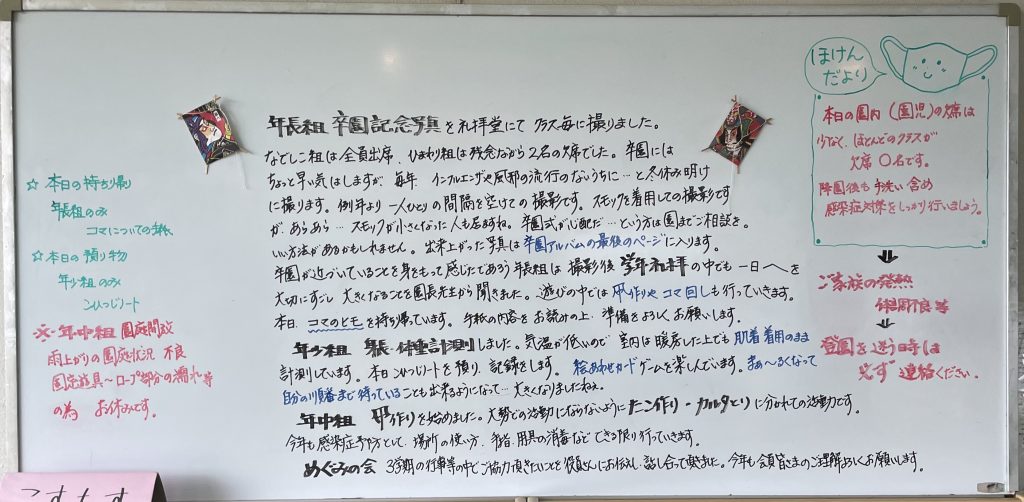 ☆ 本日の持ち帰り
年長組のみ
コマについての手紙
☆ 本日の預り物
年少組のみ
こひつじノート
※年中組 園庭開放
雨上がりの園庭状況 不良
固定遊具〜ロープ部分の濡れ等
の為 お休みです。
年長組 卒園記念写真を礼拝堂にて クラス毎に撮りました。
なでしこ組は全員出席、ひまわり組は残念ながら2名の欠席でした。卒園には
ちょっと早い気はしますが、毎年、インフルエンザや風邪の流行のないうちに…と冬休み明け
に撮ります。例年より一人ひとりの間隔を空けての撮影です。スモックを着用しての撮影です
が、あらあら…スモックが小さくなった人も居ますね。卒園式が心配だ…という方は園までご相談を。
いい方法があるかもしれません。出来上がった写真は卒園アルバムの最後のページに入ります。
卒園が近づいていることを身をもって感じたであろう年長組は撮影後 学年礼拝の中でも一日一日を
大切にすごし 大きくなることを園長先生から聞きました。遊びの中では凧作りやコマ回しも行っていきます。
本日、コマのヒモを持ち帰っています。手紙の内容をお読みの上、準備をよろしくお願いします。
年少組 身長・体重計測しました。気温が低いので室内は暖房した上でも肌着着用のまま
計測しています。本日こひつじノートを預り、記録をします。絵あわせカードゲームを楽しんでいます。まぁ〜るくなって
自分の順番まで待っていることも出来るようになって…大きくなりましたねぇ。
年中組 凧作りを始めました。大勢での活動にならないようにたこ作り・カルタとりに分かれての活動です。
今年も感染症予防として、場所の使い方、手指、用具の消毒など できる限り行っていきます。
めぐみの会 3学期の行事等の中でご協力頂きたいことを役員さんにお伝えし、話し合って頂きました。今年も会員皆さまのご理解よろしくお願いします。
ほけん
だより
本日の園内(園児)の欠席は
少なく、ほとんどのクラスが
欠席0名です。
降園後も手洗い含め
感染症対策をしっかり行いましょう。
ご家族の発熱
体調不良等
登園を迷う時は
必ず連絡ください。